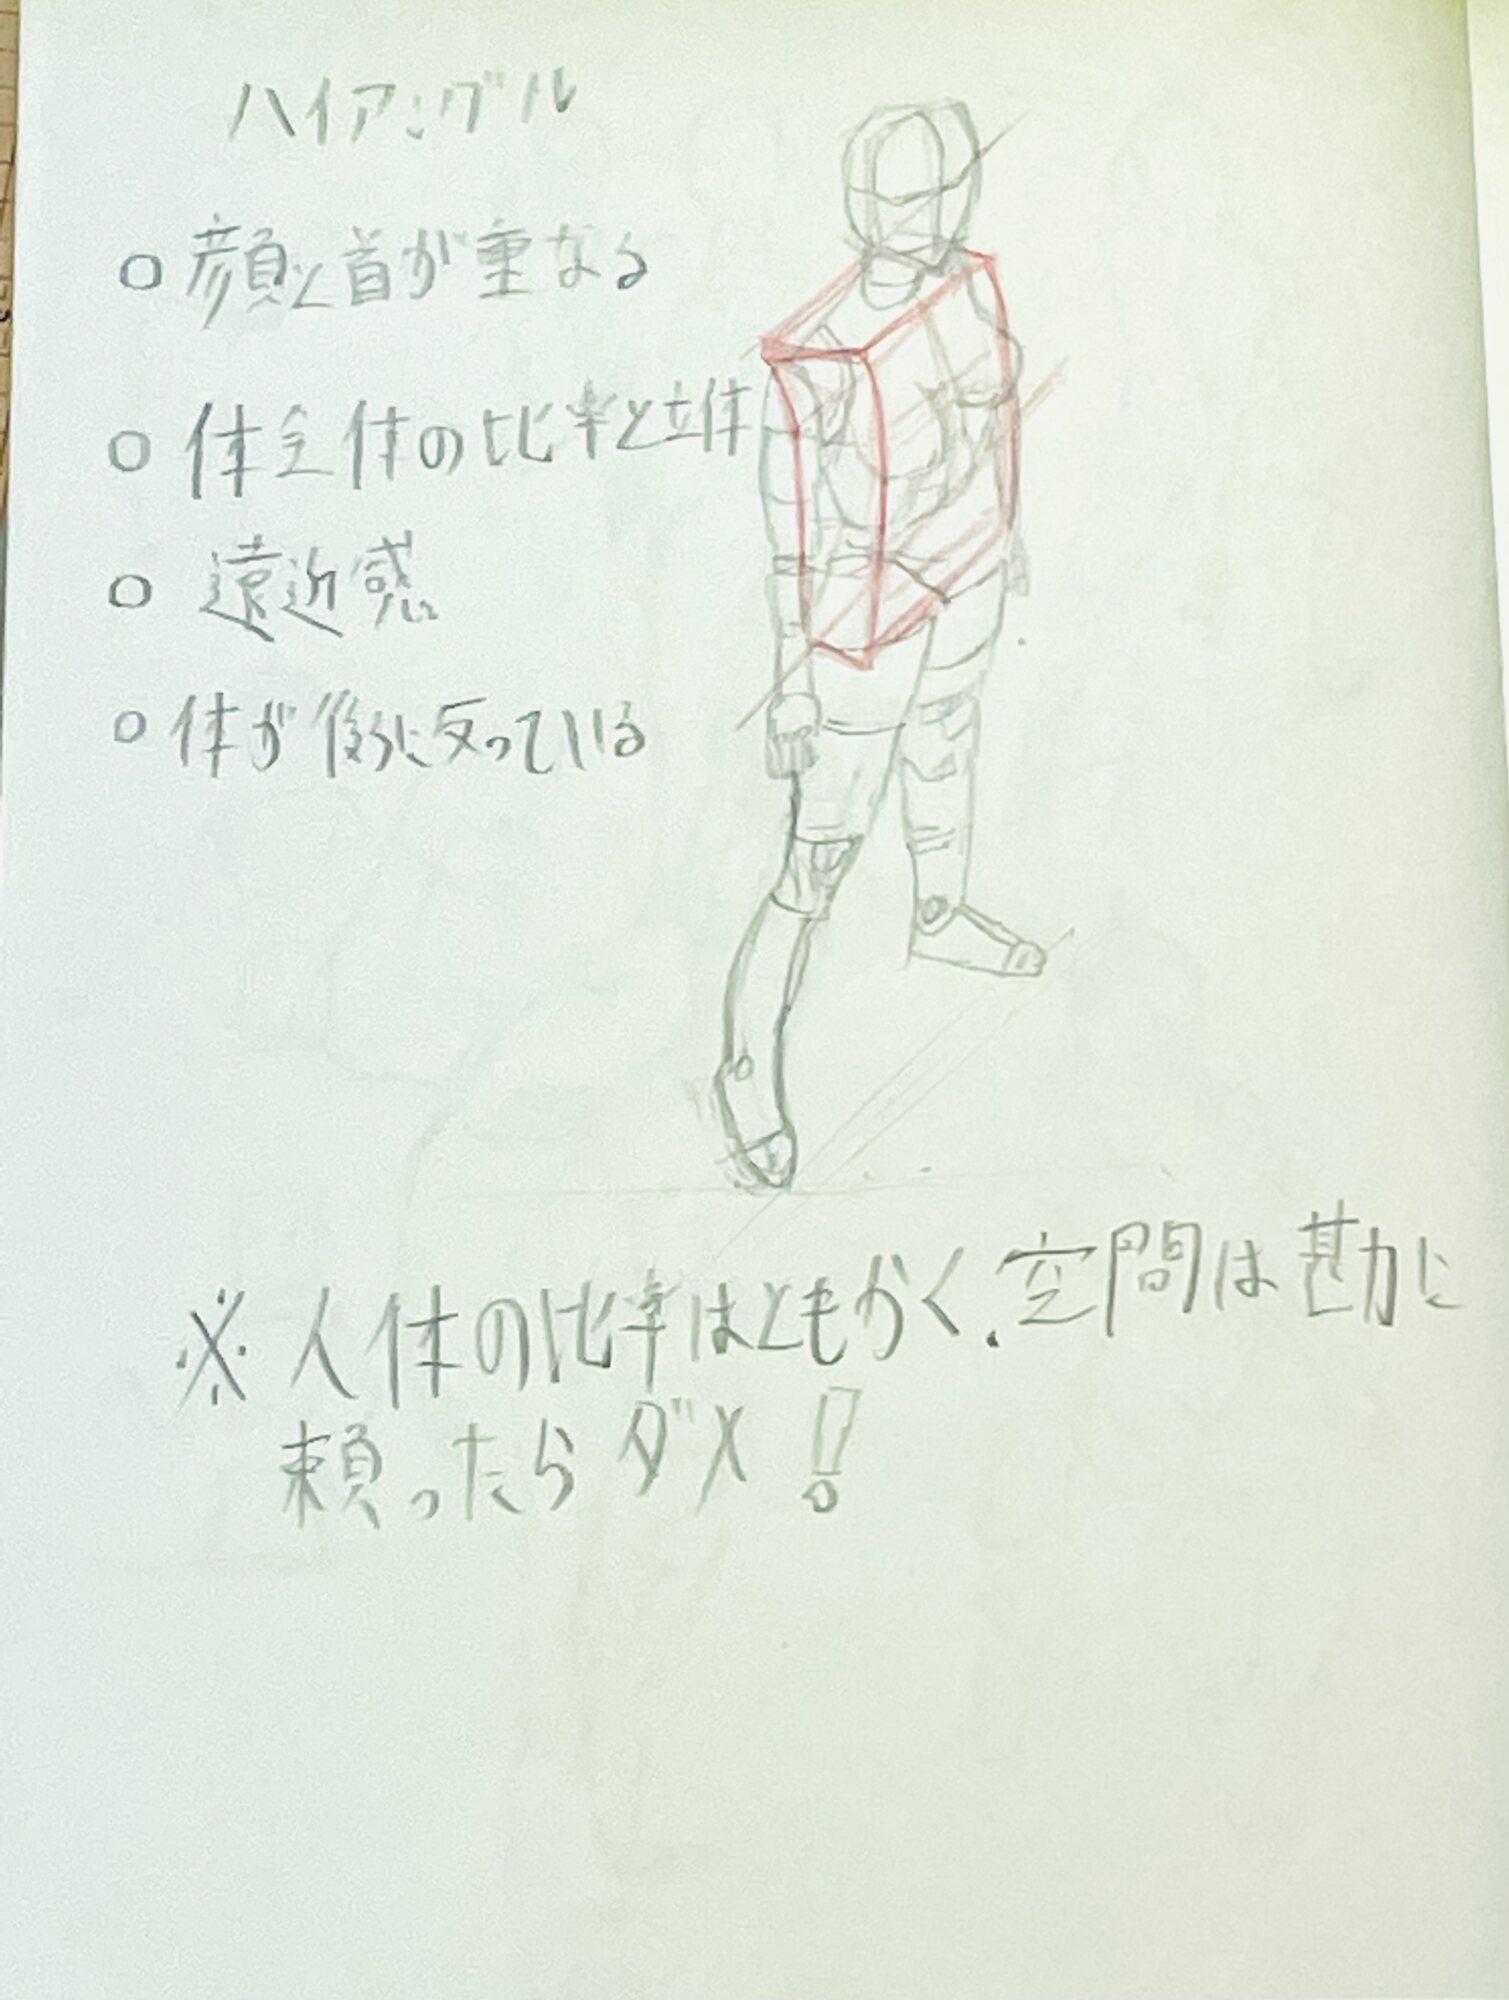 ハイアングル
○ 顔と首が重なる
○ 体全体の比率と立体
○ 遠近感
○ 体が後ろに反っている
※ 人体の比率はともかく、空間は勘に
頼ったらダメ!